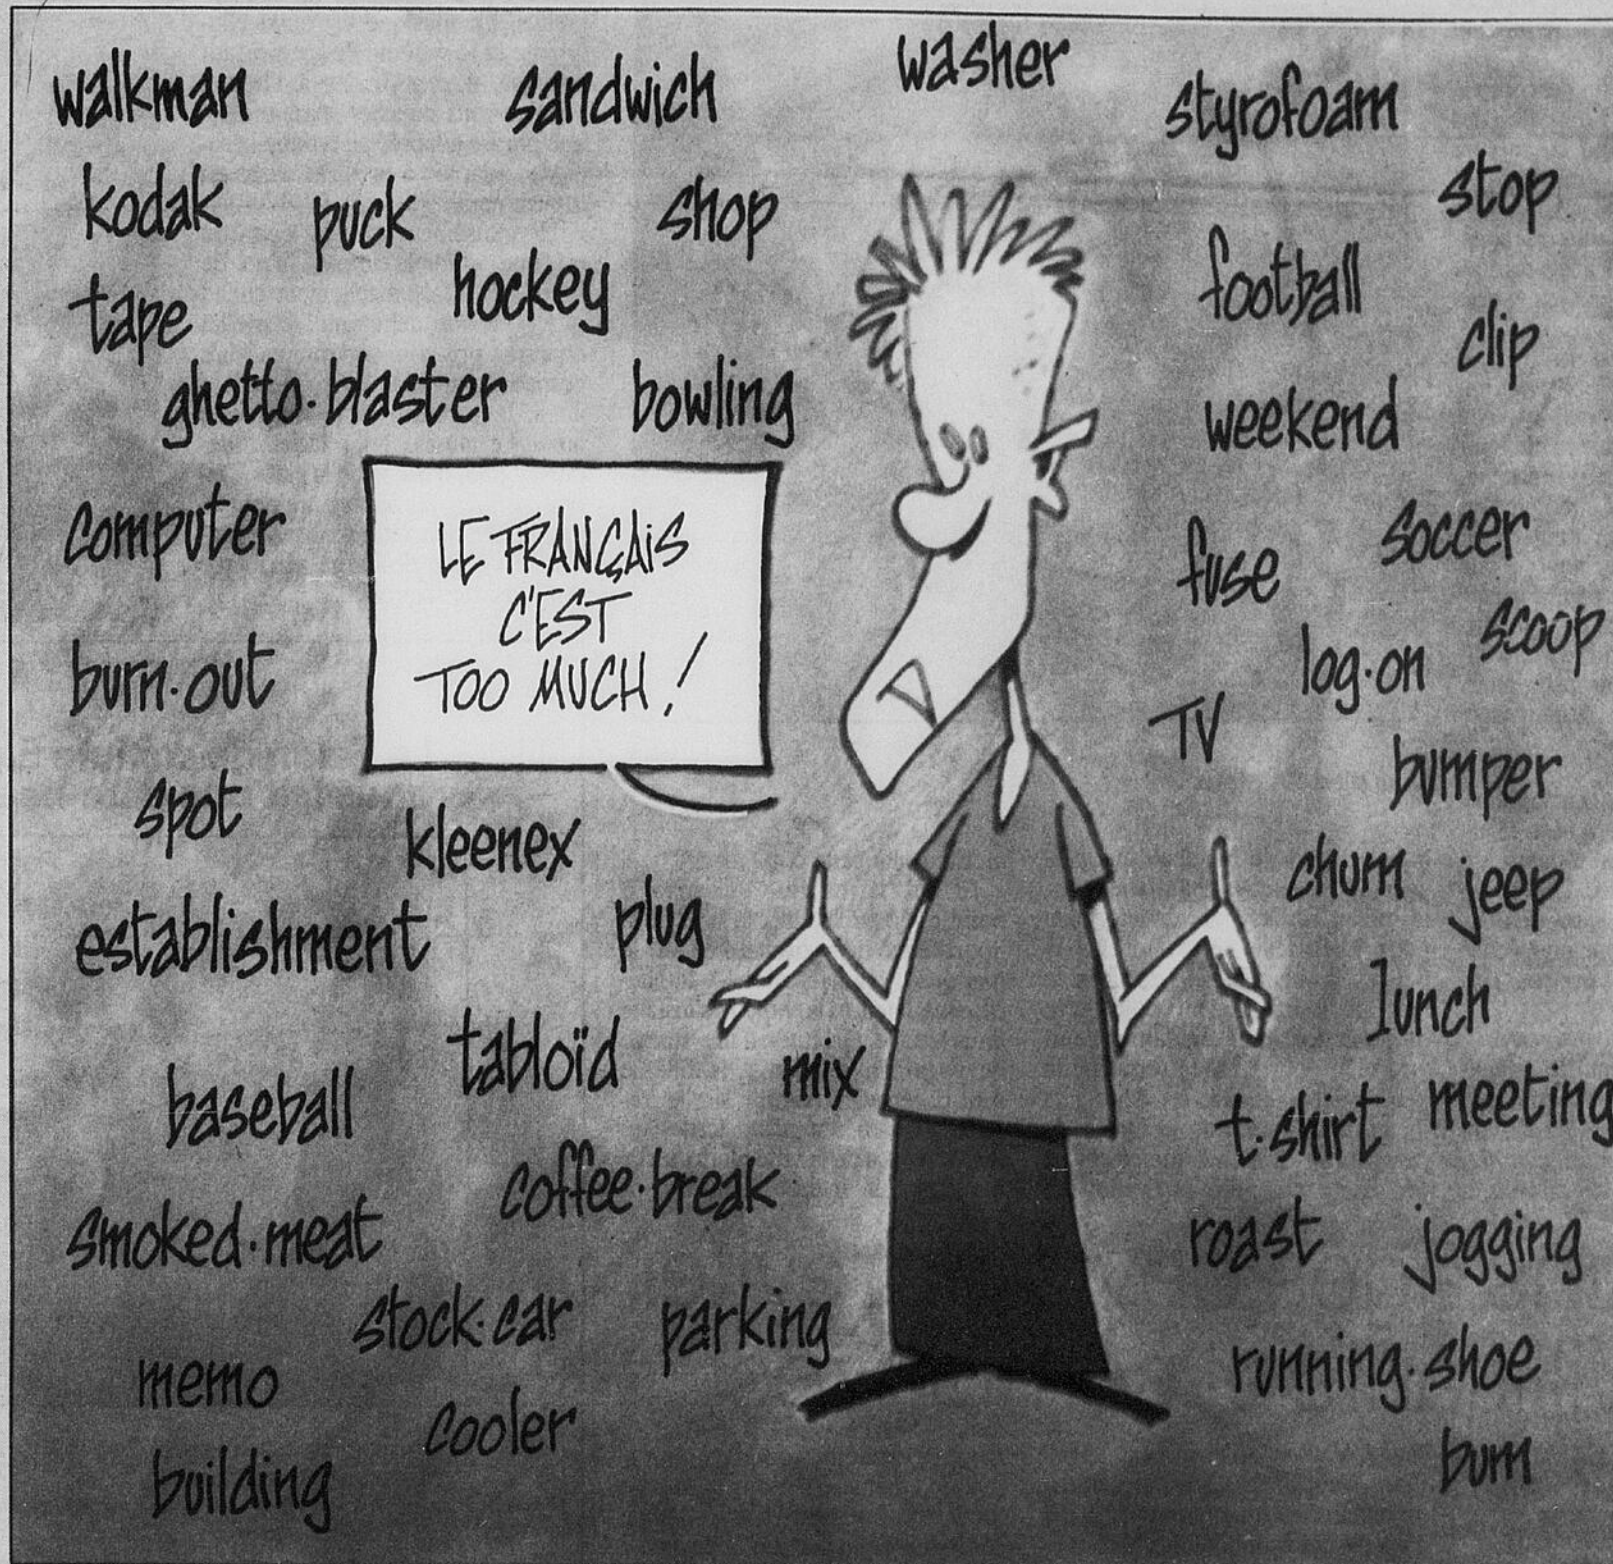 walkman
sandwich
washer
styrofoam
kodak
puck
shop
stop
tape
hockey
football
clip
ghetto·blaster
bowling
weekend
computer
LE FRANÇAiS
C'EST
TOO MUCH !
fuse
soccer
burn·out
log·on
scoop
TV
spot
kleenex
bumper
chum
jeep
establishment
plug
lunch
baseball
tabloïd
mix
t·shirt
meeting
smoked·meat
coffee·break
roast
jogging
stock·car
parking
memo
running·shoe
cooler
building
bum